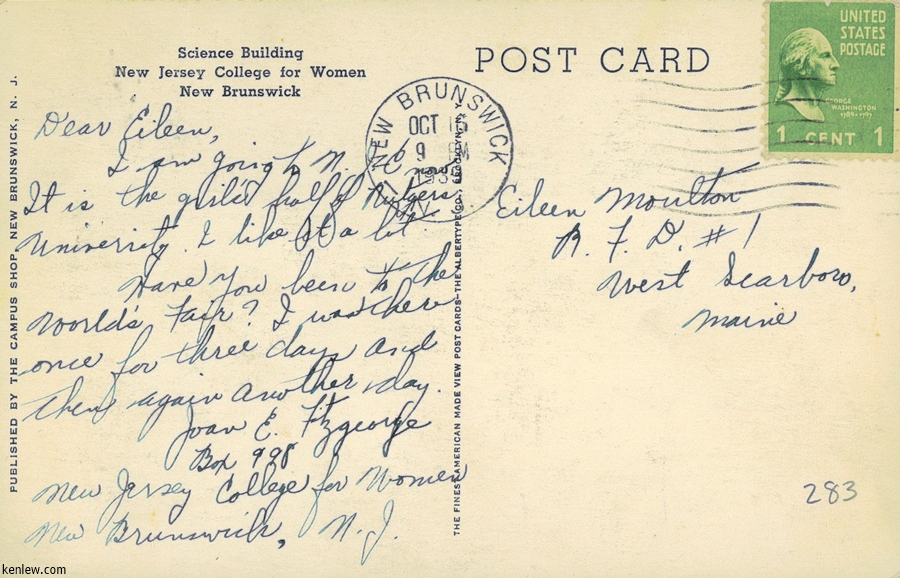 Science Building
New Jersey College for Women
New Brunswick
POST CARD
UNITED
STATES
POSTAGE
GEORGE
WASHINGTON
1789-1797
1 CENT 1
NEW BRUNSWICK
OCT 16
9 PM
1939
Dear Eileen,
I am going to N. J. C. now.
It is the girl's half of Rutgers
University. I like it a lot.
Have you been to the
World's Fair? I was there
once for three days and
then again another day.
Joan E. Fitzgeorge
Box 998
New Jersey College for Women
New Brunswick, N. J.
Eileen Moulton
R. F. D. # 1
West Scarboro,
Maine
283
PUBLISHED BY THE CAMPUS SHOP, NEW BRUNSWICK, N. J.
THE FINEST AMERICAN MADE VIEW POST CARDS—THE ALBERTYPE CO., BROOKLYN, N.Y.
kenlew.com